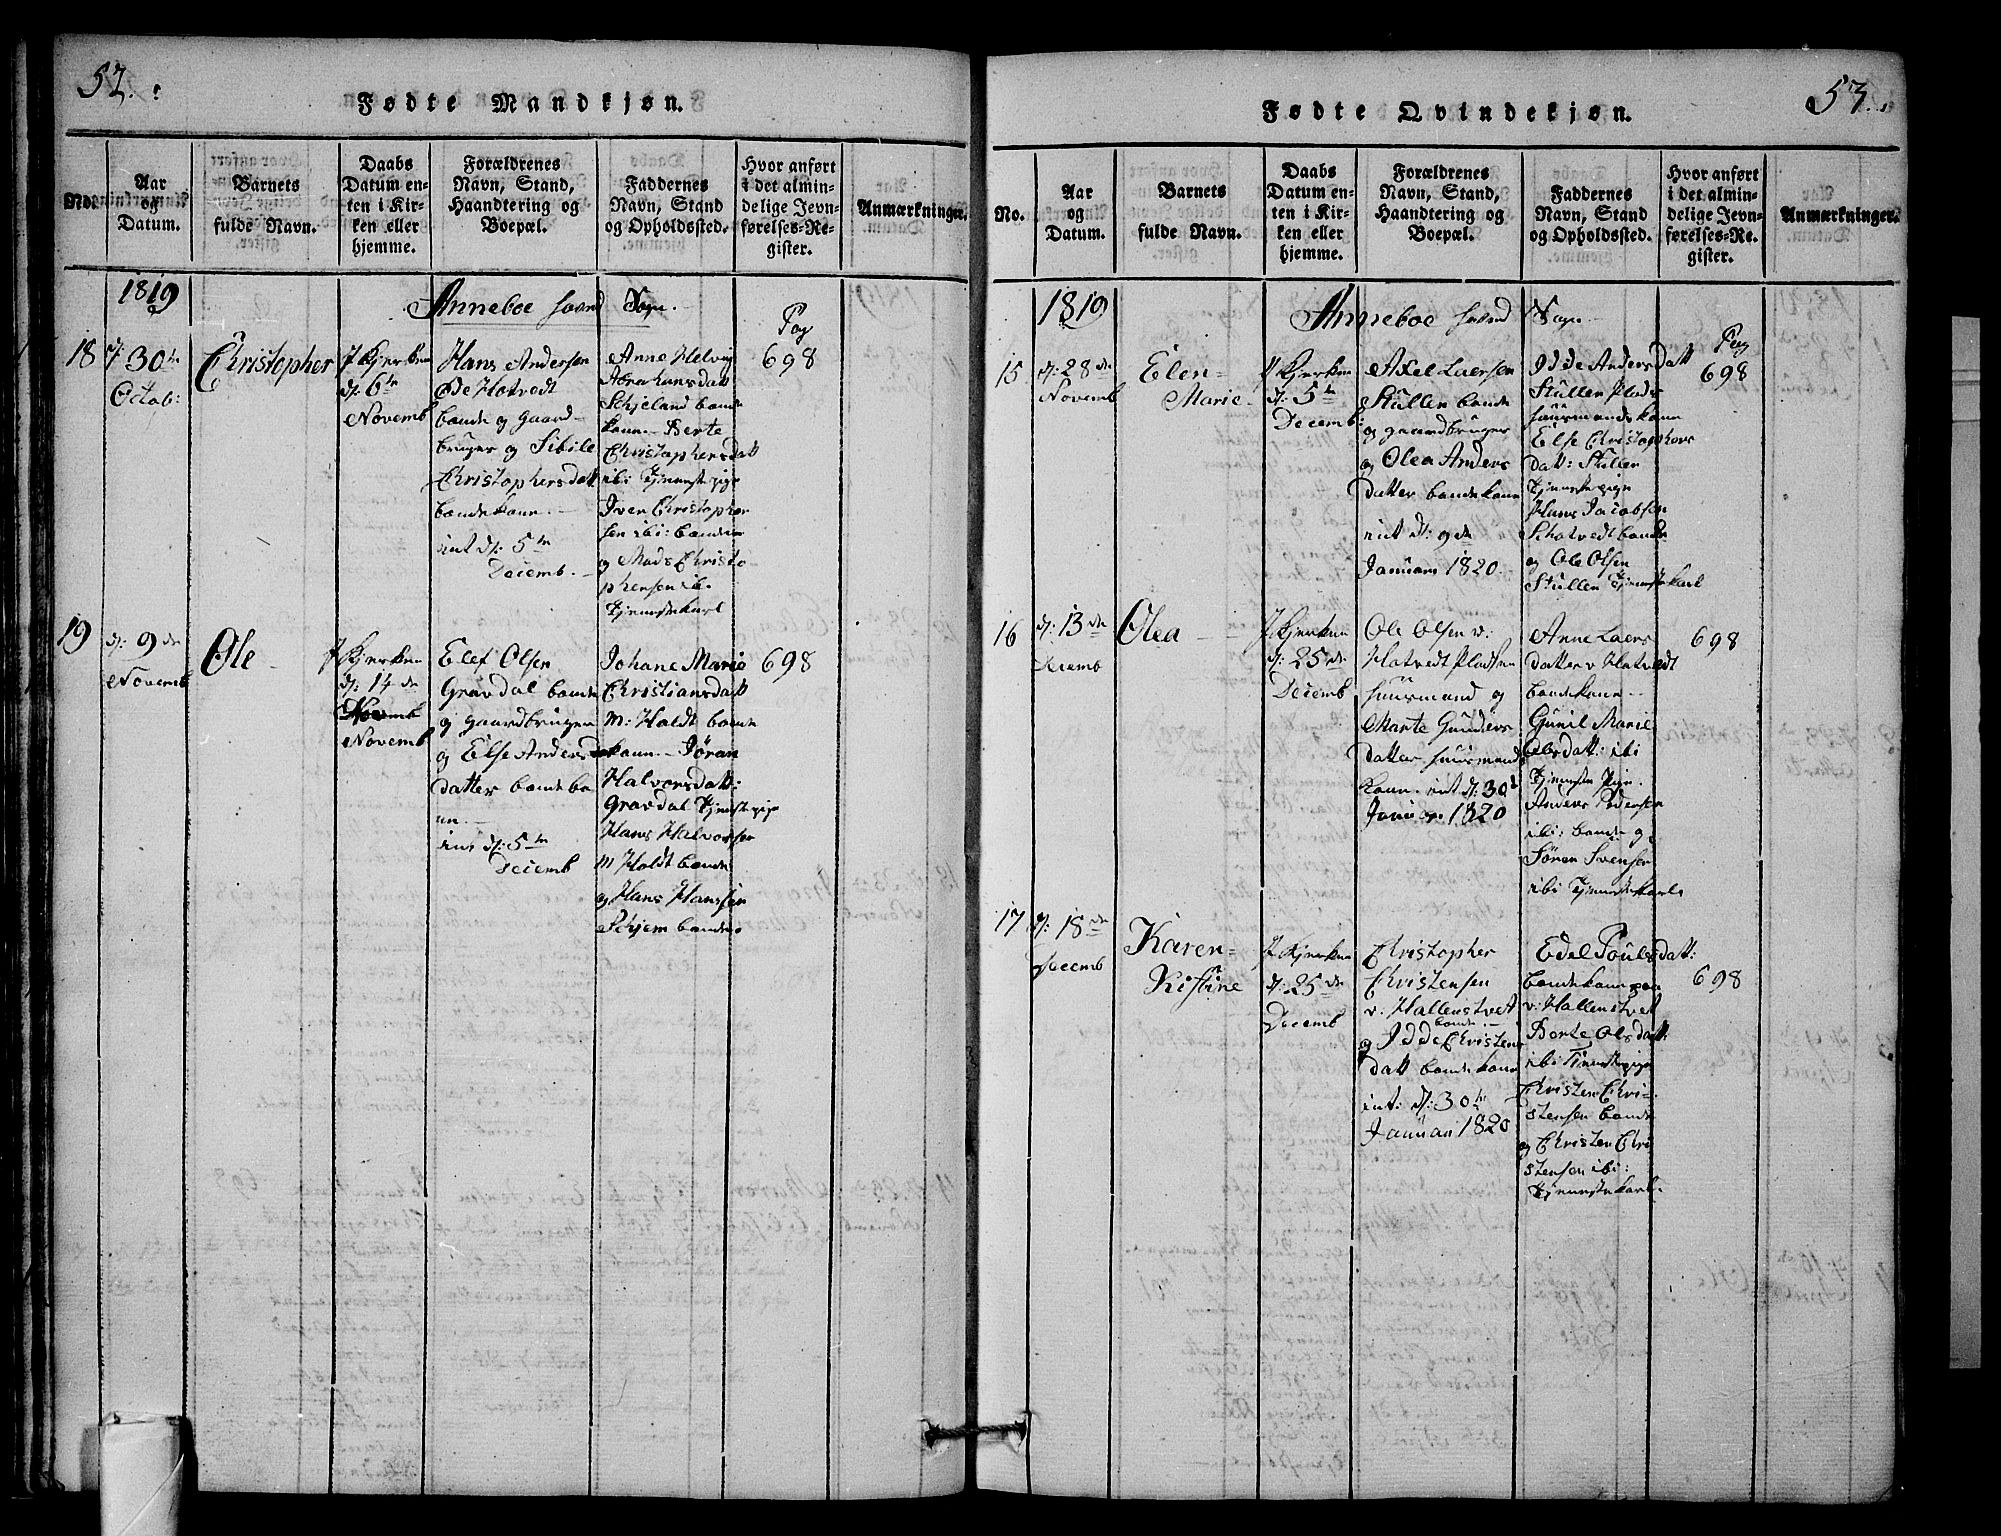 52.
Fødte Mandkjøn.
No.
Aar
og
Datum.
Barnets
fulde Navn.
Daabs
Datum en-
ten i Kir-
ken eller
hjemme.
Forældrenes
Navn, Stand,
Haandtering og
Boepæl.
Faddernes
Navn, Stand
og Opholdssted.
Hvor anført
i det almin-
delige Jevn-
førelses-Re-
gister.
Anmærkninger.
1819
Anneboe Sogn.
Pag
18
d: 30te
Octob:
Christopher
I Kjerken
d: 6te
Novemb
Hans Andersen
Hotvedt
bonde og gaard-
bruger og Sibile
Christophersdatt
bondekone.
int d: 5te
Decemb.
Anne Helvig
Abrahamsdatt
Schjeland bonde
kone. Berte
Christophersdatt
ibi Tjenestepige
Iver Christopher
sen ibi: bonde
og Mads Christo
phersen ib.
Tjenestekarl
698
19
d: 9de
Novemb
Ole
I Kjerken
d: 14de
Novemb
Novemb
Elef Olsen
Gravdal bonde
og gaardbruger
og Else Anders
datter bondeko
ne.
int d: 5te
Decemb
Johane Marie
Christiansdatt
m: Holdt bonde
kone. Jøran
Halvorsdatt:
Gravdal Tjenestepige
Hans Halvorsen
m Holdt bonde
og Hans Hanssen
Schjem bonde.
698
53.
Fødte Qvindekjøn.
No.
Aar
og
Datum.
Barnets
fulde Navn.
Daabs
Datum en-
ten i Kir-
ken eller
hjemme.
Forældrenes
Navn, Stand,
Haandtering og
Boepæl.
Faddernes
Navn, Stand
og Opholdssted.
Hvor anført
i det almin-
delige Jevn-
førelses-Re-
gister.
Anmærkninger.
1819
Anneboe Sogn
Pag
15
d: 28de
Novemb
Elen
Marie
I Kjerken
d: 5te
Decemb:
Axel Laersen
Stullen bonde
og gaardbruger
og Olea Anders
datter bondekone
int d: 9de
Januari 1820.
Idde Andersdatt
Stullen Plads
huusmandskone
Else Christophers
datt: Stullen
Tjenestepige
Hans Jacobsen
Schotvedt bonde
og Ole Olsen
Stullen Tjenestekarl
698
16
d: 13de
Decemb
Olea
I Kjerken
d: 25de
Decemb
Ole Olsen v:
Hotvedt Pladsen
huusmand og
Marte Gunders
datter huusmands
kone. int d: 30t
Januar 1820
Anne Laers
datter v Hotvedt
bondekone
Gunil Marie
Olsdatt: ibi
Tjeneste Pige
Anders Pedersen
ibi: bonde og
Søren Svensen
ibi Tjenestekarl
698
17
d: 18de
Decemb
Karen
Kistine
I Kjerken
d: 25de
Decemb
Christopher
Christensen
v: Hallenstvet
bonde
og Idde Christens
datt bondekone
int: d: 30te
Januari 1820
Edel Poulsdatt:
bondekone paa
v: Hallenstvet
Berte Olsdatt:
ibi Tienestepige
Christen Chri-
stensen bonde
og Christen Chri
stensen ibi:
Tjenestekarl.
698